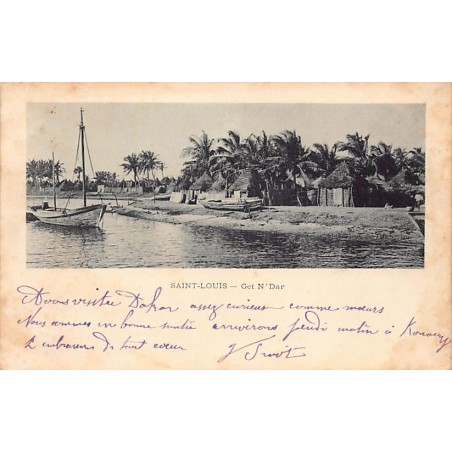 SAINT-LOUIS — Get N'Dar
Avons visité Dakar assez curieux comme mœurs
Nous sommes en bonne santé arriverons jeudi matin à
embrassons de tout cœur